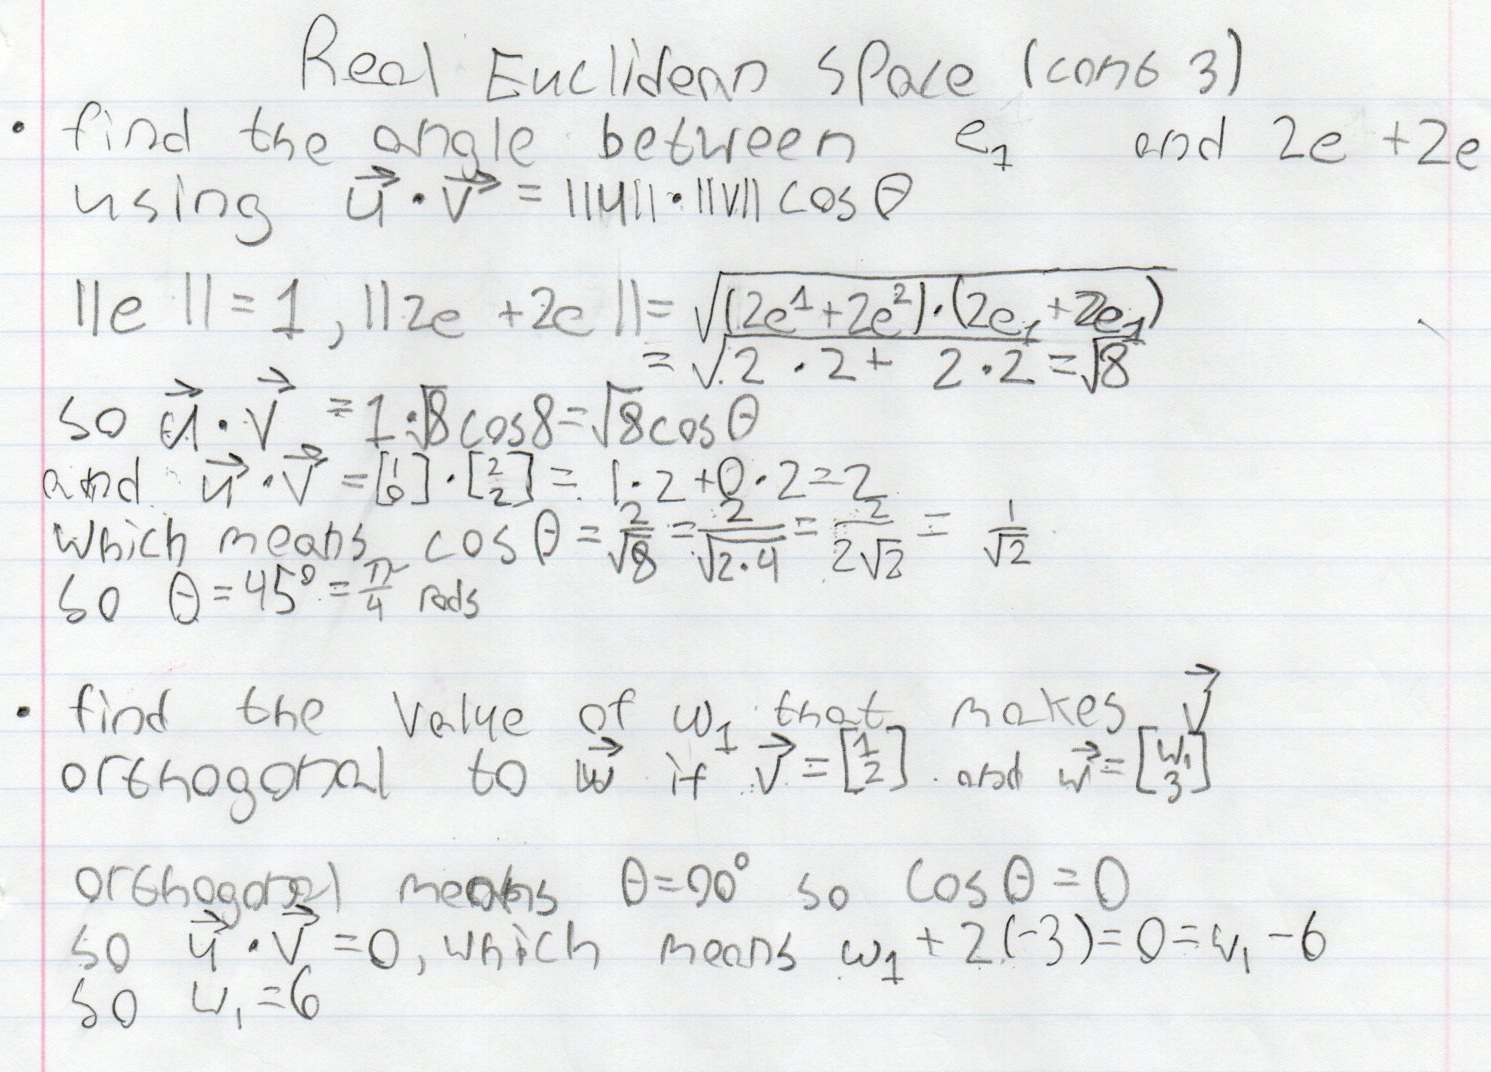 Real Euclidean space (cont 3)
• find the angle between e₁ and 2e +2e
using u⃗ · v⃗ = ||u|| · ||v|| cos θ
||e || = 1, ||2e +2e || = √(2e¹+2e²)·(2e₁+2e₁)
= √2 · 2 + 2 · 2 = √8
so u⃗ · v⃗ = 1·√8 cos8 = √8 cos θ
and u⃗ · v⃗ = [1 0] · [2 2] = 1·2 +0·2 = 2
which means cos θ = 2/√8 = 2/√2·4 = 2/2√2 = 1/√2
so θ = 45° = π/4 rads
• find the value of w₁ that makes v⃗
orthogonal to w⃗ if v⃗ = [1 2] and w⃗ = [w₁ 3]
orthogonal means θ=90° so cos θ = 0
so u⃗ · v⃗ = 0, which means w₁ + 2(-3) = 0 = w₁ - 6
so w₁ = 6